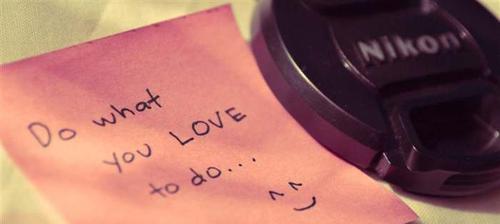 Do what
you LOVE
to do...
^^
Nikon